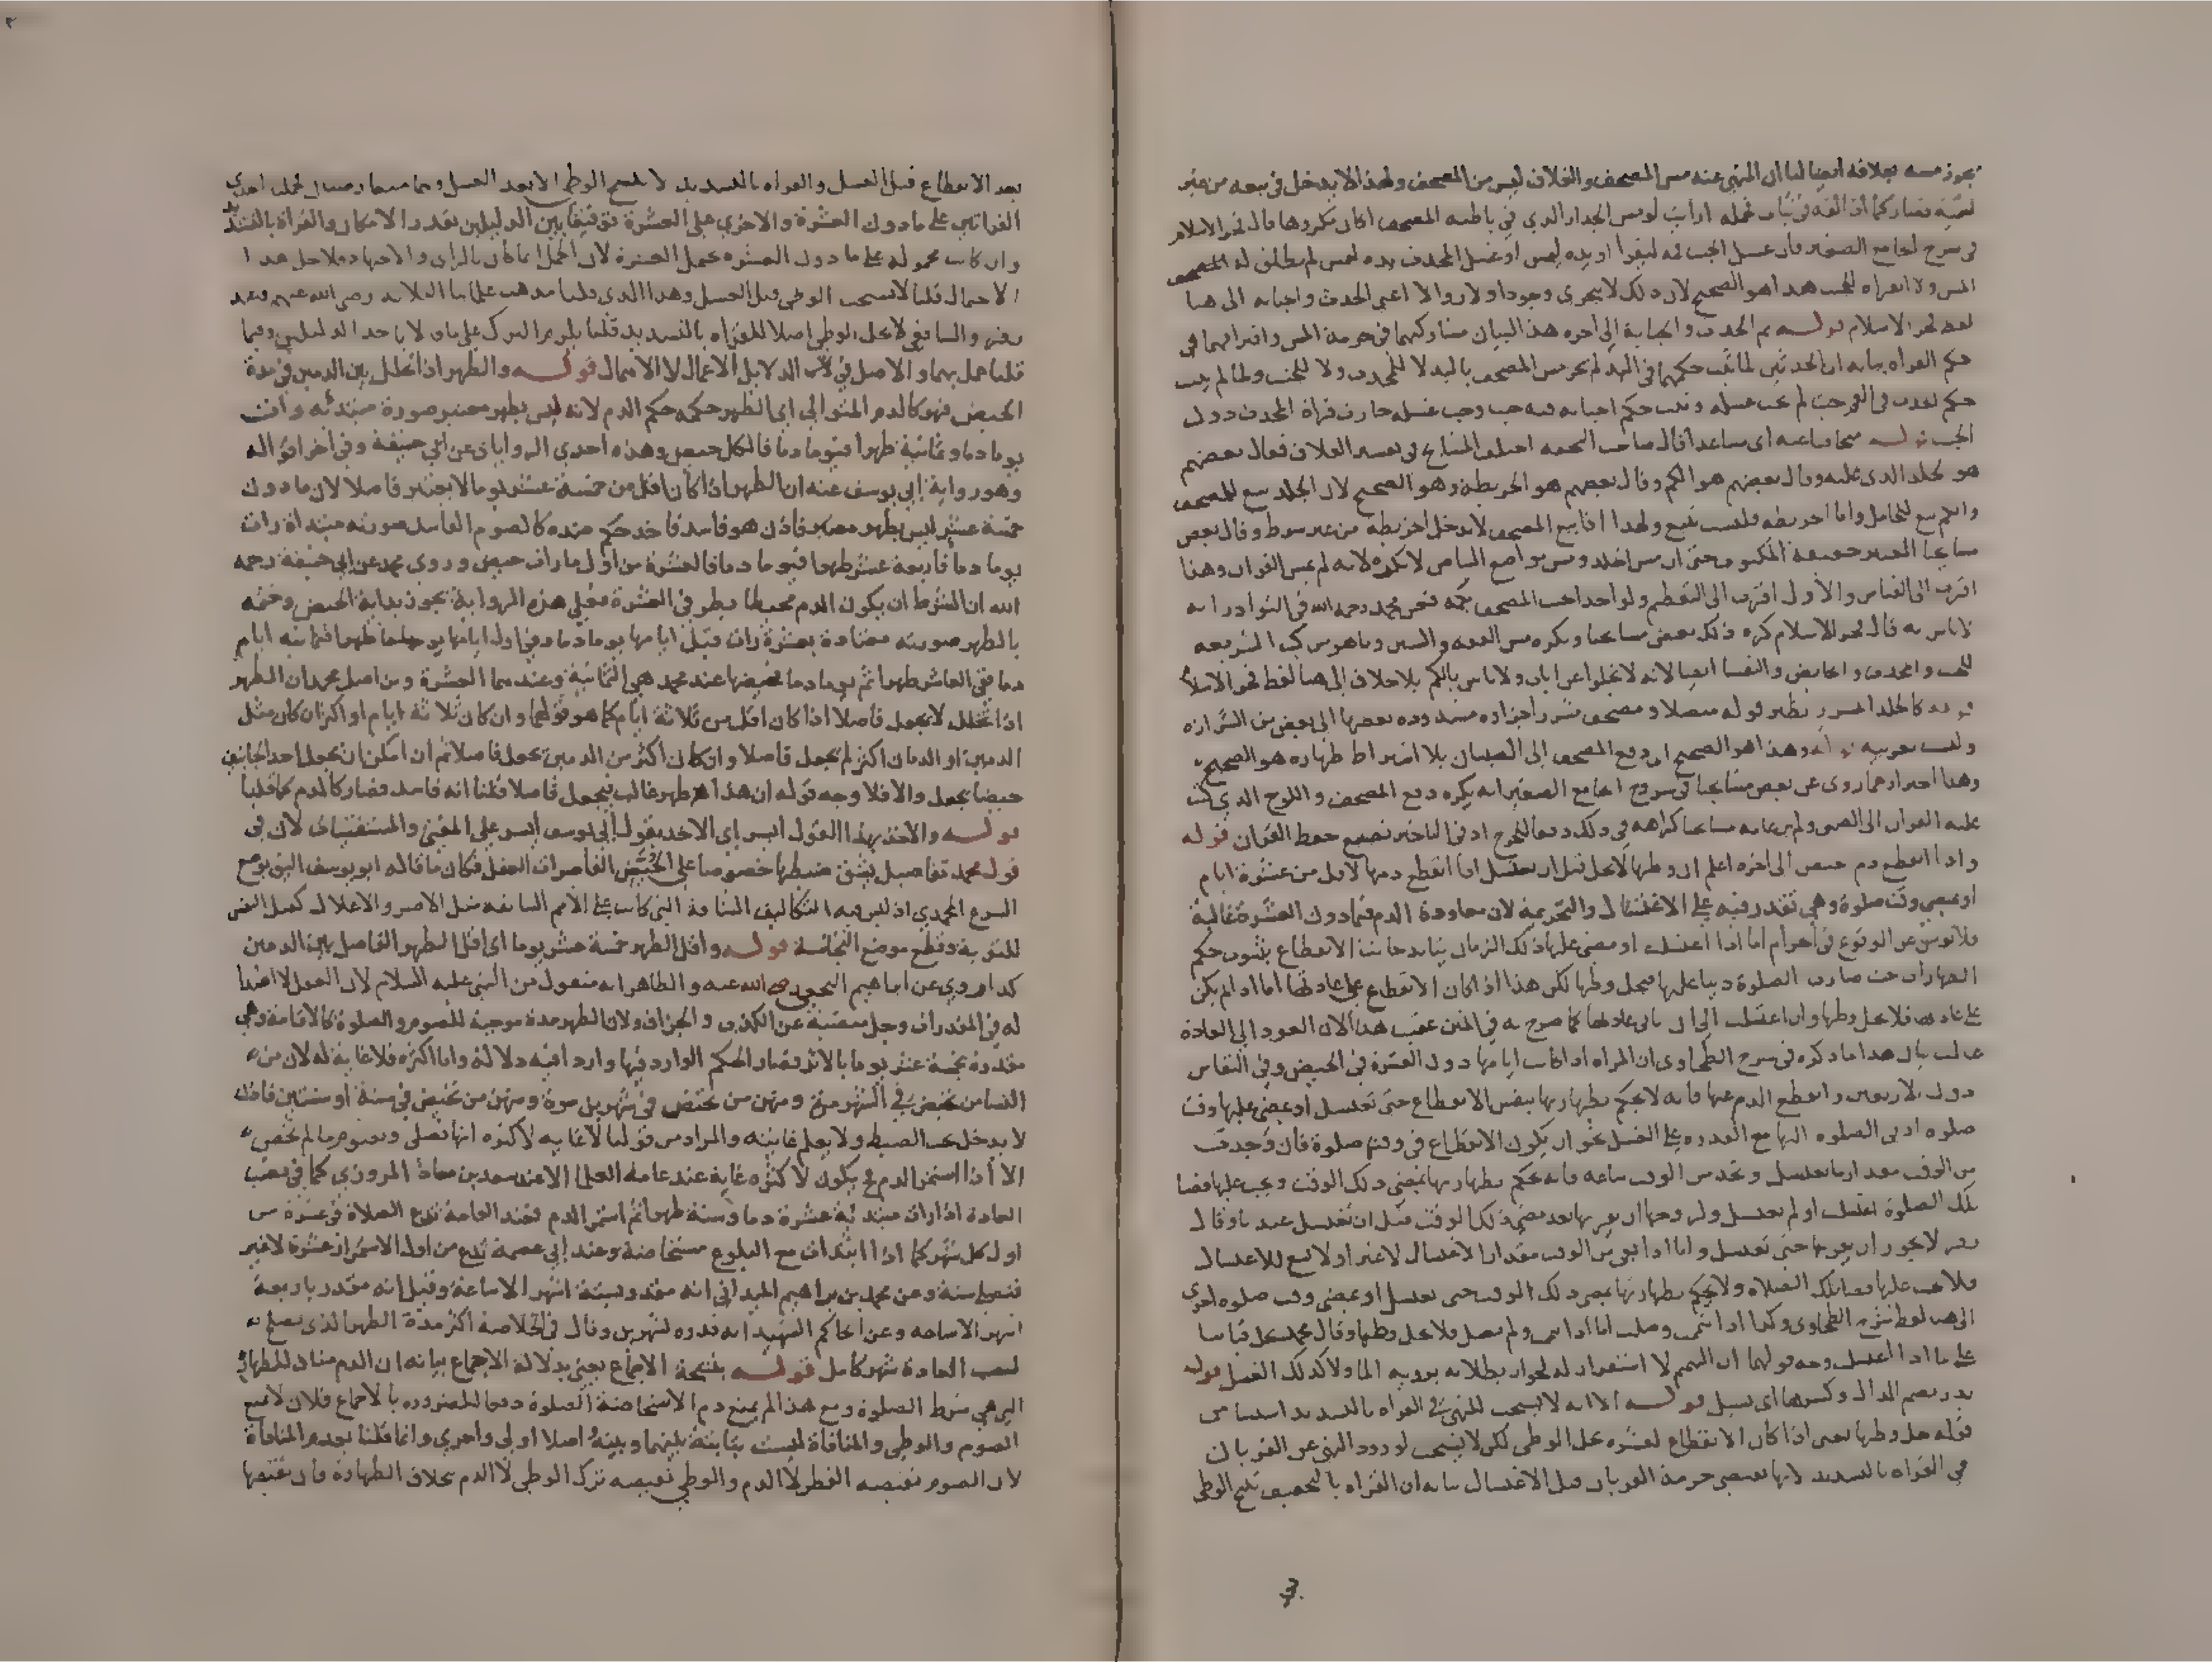 يجوز مسه بغلافه ايضا لنا ان المنهي عنه مس المصحف والغلاف ليس من المصحف ولهذا لا يدخل في بيعه من غير
تسمية فصار كما اذا لفه في ثياب فحمله ارايت لو مس الجدار الذي في باطنه المصحف اكان مكروها قال فخر الاسلام
في شرح الجامع الصغير فان غسل الجنب فمه ليقرأ او يده ليمس او غسل المحدث يده ليمس لم يطلق له المصحف
المس ولا القراه للجنب هذا هو الصحيح لان ذلك لا يتجزى وجودا ولا زوالا اعني الحدث والجنابه الى هنا
لفظ فخر الاسلام قوله ثم الحدث والجنابة الى اخره هذا البيان مشاركتهما في حرمة المس وافتراقهما في
حكم القراه بيانه ان الحدثين لما ثبت حكمهما في اليد لم يجز مس المصحف باليد لا للمحدث ولا للجنب ولما لم يثبت
حكم الحدث في الفم حيث لم يجب غسله وثبت حكم الجنابه فيه حيث وجب غسله جازت قراة المحدث دون
الجنب قوله متجافيا عنه اي متباعدا قال صاحب التحفه اختلف المشايخ في تفسير الغلاف فقال بعضهم
هو الجلد الذي عليه وقال بعضهم هو الكم وقال بعضهم هو الخريطة وهو الصحيح لان الجلد تبع للمصحف
والكم تبع للحامل واما الخريطه فليست بتبع ولهذا اذا بيع المصحف لا تدخل الخريطة من غير شرط وقال بعض
مشايخنا المعتبر حقيقة المكتوب حتى ان مس الجلد ومس مواضع البياض لا يكره لانه لم يمس القران وهذا
اقرب الى القياس والاول اقرب الى التعظيم
لا باس به قال فخر الاسلام كره ذلك بعض مشايخنا ويكره مس الفقه والسنن وما هو من كتب الشريعه
للجنب والمحدث والحايض والنفسا ايضا لانه لا يخلوا عن ايات ولا باس بالكم بلا خلاف الى هنا لفظ فخر الاسلام
قوله كالجلد المشرز نظير قوله متصلا ومصحف مشرز اجزاوه مشدوده بعضها الى بعض من الشرازه
وليست بعربيه قوله وهذا هو الصحيح اي دفع المصحف الى الصبيان بلا اشتراط طهاره هو الصحيح
وهذا احتراز عما روى عن بعض مشايخنا في شروح الجامع الصغير انه يكره دفع المصحف واللوح الذي كتب
عليه القران الى الصبي ولم ير عامه مشايخنا كراهه في ذلك دفعا للحرج اذ في التاخير تضييع حفظ القران قوله
واذا انقطع دم الحيض الى اخره اعلم ان وطيها لا يحل قبل ان تغتسل اذا انقطع دمها لاقل من عشرة ايام
او يمضي وقت صلوة وهي تقدر فيه على الاغتسال والتحريمة لان معاودة الدم فيما دون العشرة غالبة
فلا تومن عن الوقوع في الحرام اما اذا اغتسلت او مضى عليها ذلك الزمان يتايد جانب الانقطاع بثبوت حكم
الطهارات حيث صارت الصلوة دينا عليها فيحل وطيها لكن هذا اذا كان الانقطاع على عادتها اما اذا لم يكن
على عادتها فلا يحل وطيها وان اغتسلت الى ان ياتي عادتها كما صرح به في المتن عقيب هذا لان العود الى العادة
غالب بان هذا ما ذكره في شرح الطحاوي ان المراه اذا كانت ايامها دون العشرة في الحيض وفي النفاس
دون الاربعين وانقطع الدم عنها فانه لا يحكم بطهارتها بنفس الانقطاع حتى تغتسل او يمضي عليها وقت
صلوه ادنى الصلوه اليها مع القدره على الغسل نحو ان يكون الانقطاع في وقت صلوة فان وجدت
من الوقت مقدار ما تغتسل وتجد من الوقت ساعه فانه يحكم بطهارتها بمضي ذلك الوقت ويجب عليها قضا
تلك الصلوة اغتسلت او لم تغتسل ولزوجها ان يقربها بعد مضي ذلك الوقت قبل ان تغتسل عندنا وقال
زفر لا يجوز ان يقربها حتى تغتسل واما اذا بقي من الوقت مقدار الاغتسال لا غير او لا يسع للاغتسال
فلا يجب عليها قضا تلك الصلاه ولا يحكم بطهارتها بمضي ذلك الوقت حتى تغتسل او يمضي وقت صلوه اخرى
الى هنا لفظ شرح الطحاوي وكذا اذا تيممت وصلت اما اذا تيممت ولم تصل فلا يحل وطيها وقال محمد يحل قياسا
على ما اذا اغتسلت وجه قولهما ان التيمم لا استقرار له لجواز بطلانه برويه الما ولا كذلك الغسل قوله
قوله الا انه لا يستحب للنهي في القراه بالتشديد استثنا من
قوله حل وطيها يعني اذا كان الانقطاع لعشره حل الوطي لكن لا يستحب لورود النهي عن القربان
في القراه بالتشديد لانها تقتضي حرمة القربان قبل الاغتسال بيانه ان القراه بالتخفيف تبيح الوطي
بعد الانقطاع قبل الغسل والقراه بالتشديد لا تبيح الوطي الا بعد الغسل وهما متعارضتان فحملت احدى
القراتين على ما دون العشرة والاخرى على العشرة توفيقا بين الدليلين بقدر الامكان والقراة بالتشديد
وان كانت محمولة على ما دون العشره تحتمل العشرة لان الحمل انما كان بالراي والاجتهاد فلاجل هذا
الاحتمال قلنا لا يستحب الوطي قبل الغسل وهذا الذي قلنا مذهب علمائنا الثلاثه رضي الله عنهم وعند
زفر والشافعي لا يحل الوطي اصلا للقراه بالتشديد قلنا يلزم الترك على ما قالا باحد الدليلين وفيما
قلنا عمل بهما والاصل في الدلايل الاعمال لا الاهمال قوله والطهر اذا تخلل بين الدمين في مدة
الحيض فهو كالدم المتوالي اي الطهر حكمه حكم الدم لانه ليس بطهر معتبر صورة مبتدئه رات
يوما دما وثمانية طهرا ويوما دما فالكل حيض وهذه احدى الروايات عن ابي حنيفة وفي اخر اقواله
وهو رواية ابي يوسف عنه ان الطهر اذا كان اقل من خمسة عشر يوما لا يعتبر فاصلا لان ما دون
خمسة عشر ليس بطهر معتبر فاذن هو فاسد فاخذ حكم ضده كالصوم الفاسد صورته مبتداة رات
يوما دما واربعة عشر طهرا ويوما دما فالعشرة من اول ما رات حيض وروى محمد عن ابي حنيفة رحمه
الله ان الشرط ان يكون الدم محيطا بطرفي العشرة فعلى هذه الرواية لا يجوز بداية الحيض وختمه
بالطهر صورته معتادة بعشرة رات قبل ايامها يوما دما وفي اول ايامها يوما طهرا ثمانيه ايام
دما وفي العاشر طهرا ثم يوما دما فحيضها عند محمد هي الثمانية وعندهما العشرة ومن اصل محمد ان الطهر
اذا تخلل لا يجعل فاصلا اذا كان اقل من ثلاثة ايام كما هو قولهما وان كان ثلاثة ايام او اكثر ان كان مثل
الدمين او الدمان اكثر لم يجعل فاصلا وان كان اكثر من الدمين يجعل فاصلا ثم ان امكن ان يجعل احد الجانبين
حيضا يجعل والا فلا وجه قوله ان هذا طهر غالب فيجعل فاصلا قلنا انه فاسد فصار كالدم كما قلنا
قوله والاخذ بهذا القول ايسر اي الاخذ بقول ابي يوسف ايسر على المفتي والمستفتيات لان في
قول محمد تفاصيل يشق ضبطها خصوصا على الحيض القاصرات العقل فكان ما قاله ابو يوسف اليق بوضع
الشرع المحمدي اذ ليس فيه التكاليف الشاقة التي كانت على الامم السالفه مثل الاصر والاغلال كقتل النفس
للتوبة وقطع موضع النجاسة قوله واقل الطهر خمسة عشر يوما اي اقل الطهر الفاصل بين الدمين
كذا روي عن ابراهيم النخعي رضي الله عنه والظاهر انه منقول من النبي عليه السلام لان العقل لا اهتدا
له في المقدرات وجل منصبه عن الكذب والجزاف ولان الطهر مدة موجبة للصوم والصلوة كالاقامة وهي
مقدرة بخمسة عشر يوما بالاثر فصار الحكم الوارد فيها واردا فيه دلالة واما اكثره فلا غاية له لان من
النسا من تحيض في الشهر مرة ومنهن من تحيض في شهرين مرة ومنهن من تحيض في سنة او سنتين فاذن
لا يدخل تحت الضبط ولا يعلم غايته والمراد من قولنا لا غايه لاكثره انها تصلي وتصوم ما لم تحض
الا اذا استمر الدم فح يكون لاكثره غاية عند عامة العلما الا عند سعد بن معاذ المروزي كما في نصب
العادة اذا رات مبتدئة عشرة دما وسنة طهرا ثم استمر الدم فعند العامة تدع الصلاة في عشرة من
اول كل شهر كما اذا ابتدات مع البلوغ مستحاضة وعند ابي عصمة تدع من اول الاستمرار عشرة لا غير
فتصلي سنة وعن محمد بن ابراهيم الميداني انه مقدر بستة اشهر الا ساعة وقيل انه مقدر باربعة
اشهر الا ساعه وعن الحاكم الشهيد انه قدره لشهرين وقال في الخلاصة اكثر مدة الطهر الذي يصلح
لنصب العادة شهر كامل قوله بنتيجة الاجماع يعني بدلالة الاجماع بيانه ان الدم مناف للطهارة
التي هي شرط الصلوة ومع هذا لم يمنع دم الاستحاضة الصلوة دفعا للضروره بالاجماع فلان لا يمنع
الصوم والوطي والمنافاة ليست بثابتة بينهما وبينه اصلا اولى واحرى وانما قلنا بعدم المنافاة
لان الصوم نقيضه الفطر لا الدم والوطي نقيضه ترك الوطي لا الدم بخلاف الطهارة فان نقيضها